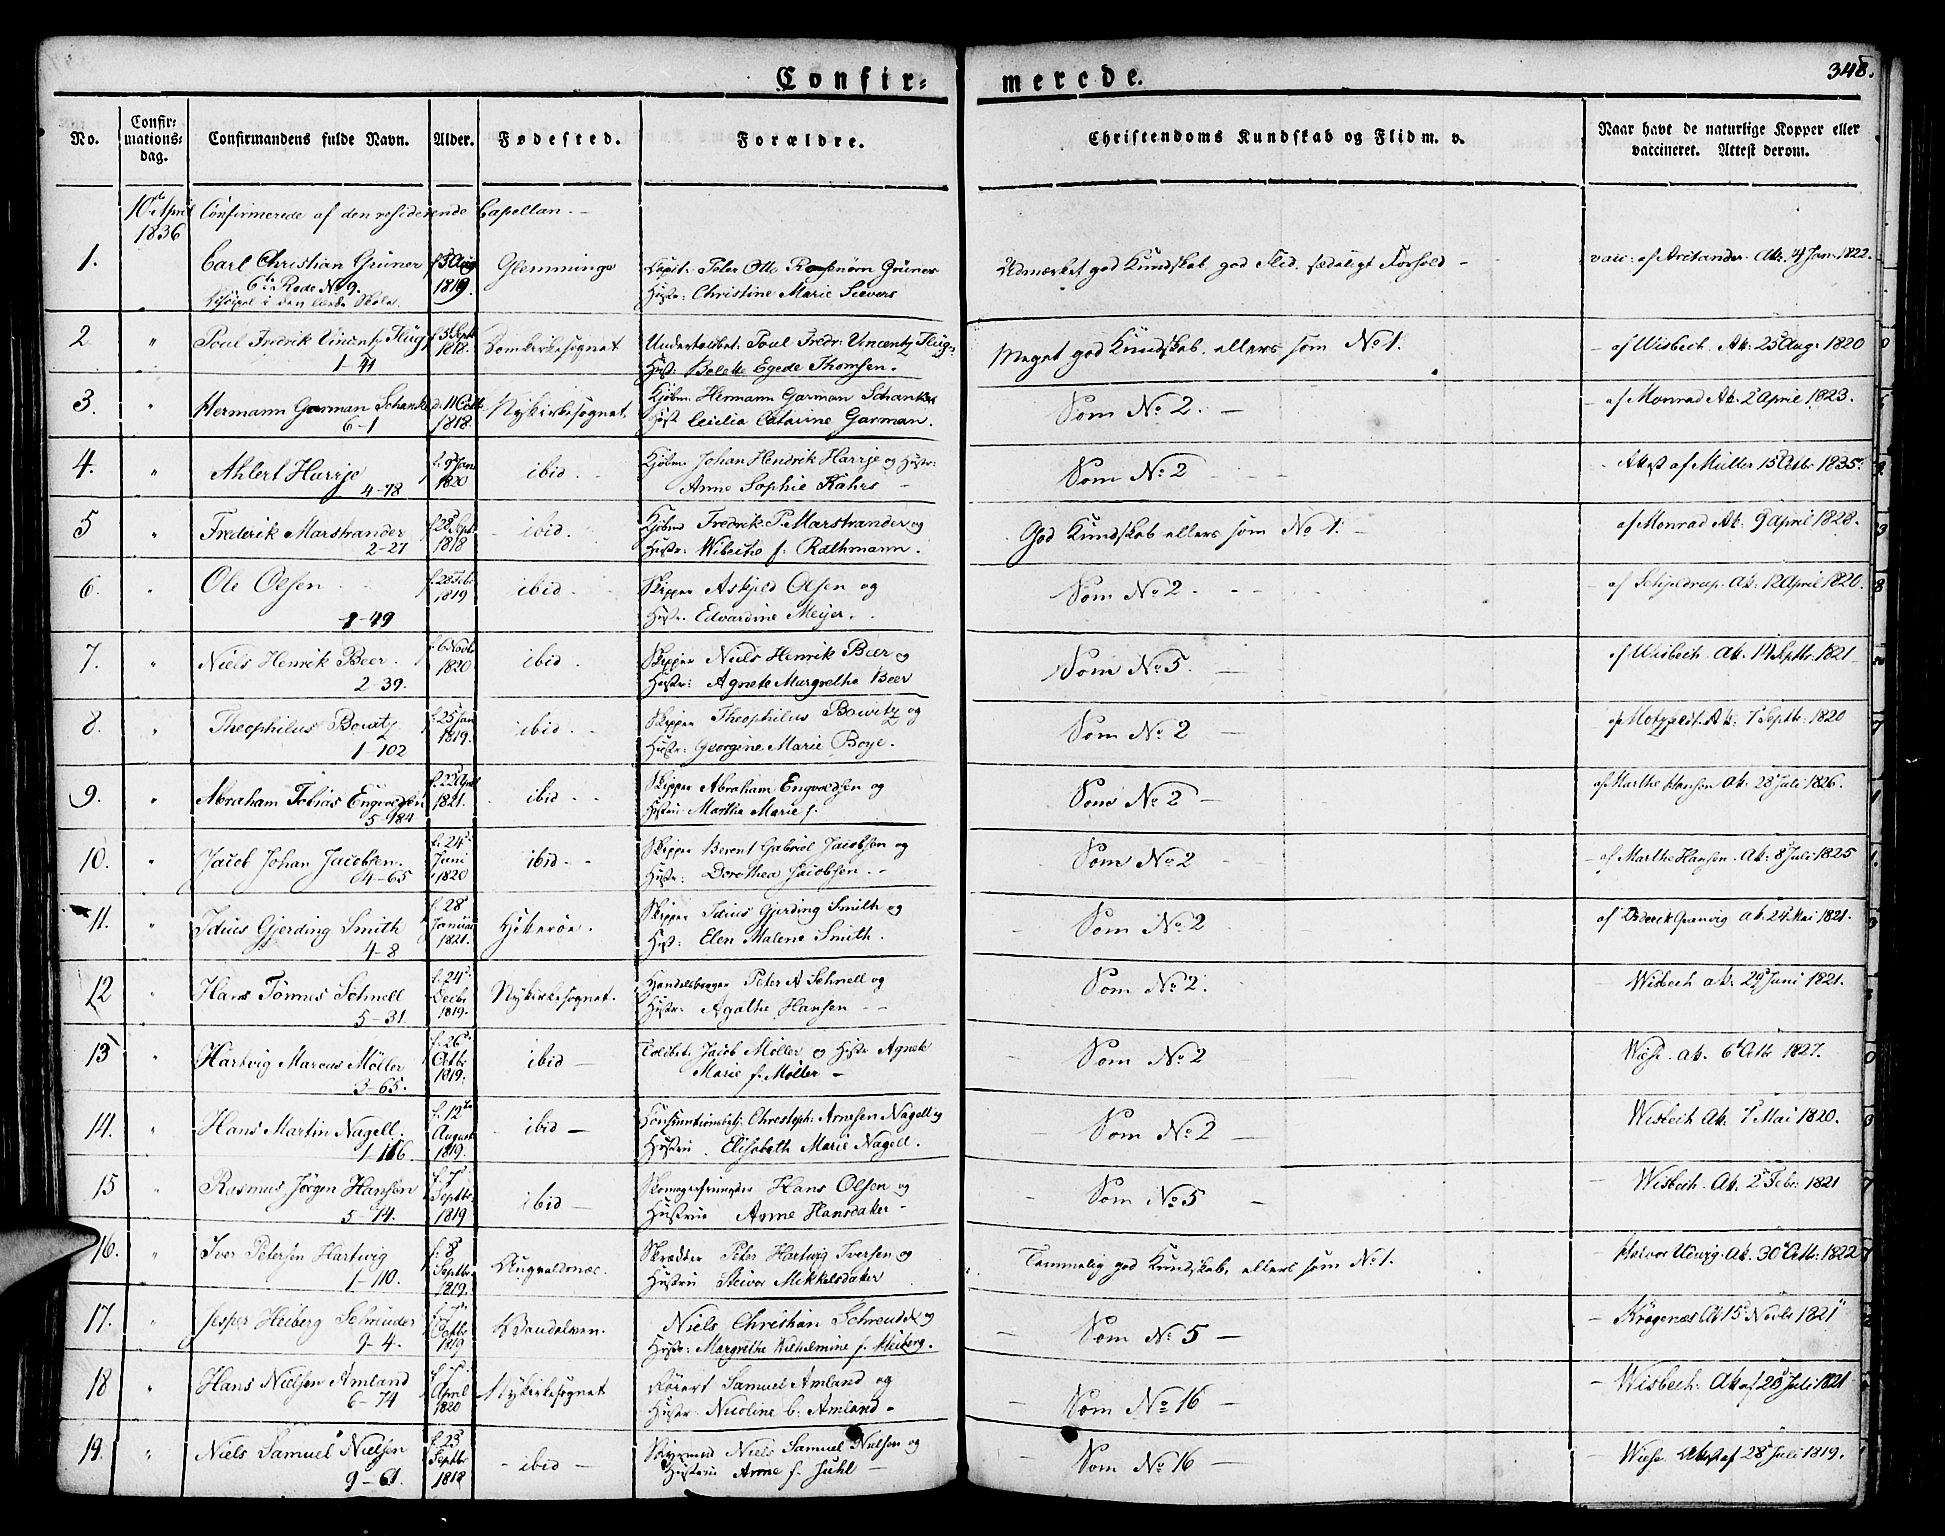 Confir=
merede.
348.
No.
Confir=
mations=
dag.
Confirmandens fulde Navn.
Alder.
Fødested.
Forældre.
Christendoms Kundskab og Flid m. v.
Naar havt de naturlige Kopper eller
vaccineret. Attest derom.
10de April
1836
Confirmerede af den residerende Capellan. –
1.
Carl Christian Grüner
6te Rode No 9.
f 5 Aug
1819.
Glemminge
Peter Otte Rosenørn Grüner
Hustr: Christine Marie Sievers
Udmærket god Kundskab god Flid. sædeligt Forhold –
vacc: af Arctander. At: 4 Jan. 1822.
2
"
Poul Fredrik Vincentz Flug
1-41
f 5 Septb
1818.
Domkirkesognet
Poul Fredr: Vincentz Flug
Hust: Bolette Egede Thomsen.
Meget god Kundskab. ellers som No 1.
– af Wisbech. At: 25 Aug. 1820
3.
"
Hermann Garman Schanke
6-1
11 Octb
1818.
Nykirkesognet.
Kjøbm: Hermann Garman Schanke
Hust Cecilia Catarine Garman.
Som No 2. –
– af Monrad At: 2 April 1823.
4.
"
Ahlert Harrje
4-78
f: 9 Jan
1820
ibid. –
Kjøbm: Johan Hendrik Harrje og Hustr:
Anne Sophie Kahrs –
Som No 2
– Attest af Müller 15 Octbr 1835.
5
"
Frederik Marstrander
2-27
f. 28 Sept
1818
– ibid.
Kjøbmd Fredrik P. Marstrander og
Hustr: Wibeche f. Rathmann.
God Kundskab ellers som No 1. –
af Monrad At: 9 April 1828.
6.
"
Ole Olsen
1-49
f. 28 Feb
1819
ibid. –
Skipper Askjeld Olsen og
Hustr: Edvardine Meijer.
Som No 2
– af Schjeldrup. At: 12 April 1820.
7.
"
Niels Henrik Beer.
2-39.
f. 6 Novb
1820
ibid.
Skipper Niels Henrik Beer og
Hustr: Agnete Margrethe Beer
Som No 5 –
af Wisbech. At. 14 Septbr. 1821
8.
"
Theophilus Bowitz
1-102
f. 25 Jan
1819.
ibid.
Skipper Theophilus Bowitz og
Hustr: Georgine Marie Boye.
Som No 2 –
af Motzfeldt. At: 7 Septbr. 1820
9.
"
Abraham Tobias Engvoldsen
5-184
f. 22 April
1821.
– ibid –
Skipper Abraham Engvoldsen og
Hustru: Martha Marie f.
Som No 2 –
af Marthe Hansen At: 28 Juli 1826.
10.
"
Jacob Johan Jacobsen.
4-65
f. 24
Juni
1820
ibid. –
Skipper Berent Gabriel Jacobsen og
Hustr: Dorothea Jacobsen. –
Som No 2
– af Marthe Hansen. At: 8 Juli 1825
11.
"
Idius Gjerding Smith
4-8
f. 28
Januar
1821.
Hitterøe.
Skipper Idius Gjerding Smith og
Hust: Elen Malene Smith.
Som No 2
af Diderik Granvig At. 24 Mai 1821.
12
"
Hans Tönnes Schnell
5-31.
f. 24
Decbr
1819.
Nykirkesognet.
Peter A Schnell og
Hustr: Agathe Hansen – –
Som No 2.
– Wisbech At: 29 Juni 1821.
13
"
Hartvig Marcus Möller
3-65.
f. 26
Octbr
1819.
ibid –
Jacob Møller og Hustr Agnete
Marie f. Møller –
Som No 2 –
Wiese. At. 6 Octbr 1827.
14.
"
Hans Martin Nagell.
1-116
f: 12te
August
1819.
– ibid –
Christoph: Arnsen Nagell og
Hustru Elisabeth Marie Nagell.
Som No 2 –
Wisbech At: 7 Mai 1820.
15
"
Rasmus Jørgen Hansen
5-74.
f. 7
Septbr
1819
ibid –
Hans Olsen og
Hustrue Anne Hansdatter –
Som No 5 –
– Wisbech. At. 2 Febr. 1821
16.
"
Iver Petersen Hartwig
1-110.
f: 8
Septbr
1819.
Augvaldsnæs.
Skrædder Peter Hartwig Iversen og
Hustrue Steivor Mikkelsdatter
Temmelig god Kundskab, ellers som No 1.
– Halvor Udvig. At. 30 Octbr. 1822
17.
"
Jesper Heiberg Schreuder
9-4.
Octbr
1819
Niels Christian Schreuder og
Hustr: Margrethe Vilhelmine f. Heiberg.
Som No 5 –
– Krøgenæs At 15 Novbr 1821
18
"
Hans Nielsen Åmland
6-74
April
1820
Nykirkesognet
Samuel Åmland og
Hustr. Nicoline b. Amland –
Som No 16 –
– Wisbech: At af 28 Juli 1821
19.
"
Niels Samuel Nielsen
9-61.
f. 23
Septbr
1818
– ibid –
Niels Samuel Nielsen og
Hustrue Anne f. Juhl –
Som No 16 –
Wiese Attest af 28 Juli 1819.